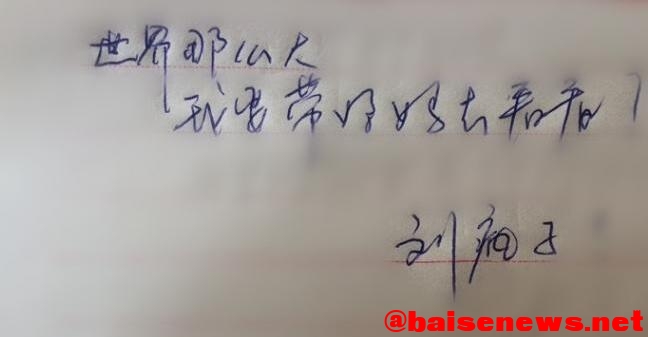 世界那么大
我要带妈妈去看看！
刘痴子
@baisenews.net